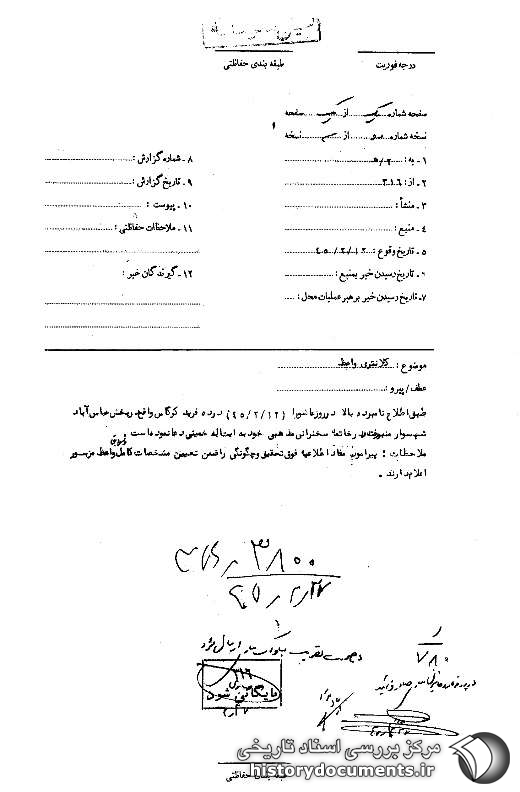 درجه فوریت
طبقه بندی حفاظتی
صفحه شماره ... یک ... از ... یک ... صفحه
نسخه شماره ... از ... نسخه
۱ـ به : ... ۵/۲
۲ـ از : ... ۳۱۶
۳ـ منشأ : ...
۴ـ منبع : ...
۵ـ تاریخ وقوع : ... ۴۵/۲/۱۲
۶ـ تاریخ رسیدن خبر بمنبع : ...
۷ـ تاریخ رسیدن خبر برهبر عملیات محل : ...
۸ـ شماره گزارش : ...
۹ـ تاریخ گزارش : ...
۱۰ـ پیوست : ...
۱۱ـ ملاحظات حفاظتی : ...
۱۲ـ گیرندگان خبر :
موضوع : کلانتری واعظ
عطف / پیرو : ...
طبق اطلاع نامبرده بالا در روز عاشورا (۴۵/۲/۱۲) در ده فرید کوکاس واقع در بخش عباس آباد
شهسوار در خاتمه سخنرانی مذهبی خود به آیت اله خمینی دعا نموده است
ملاحظات : پیرامون مفاد اطلاعیه فوق تحقیق و چگونگی را ضمن تعیین مشخصات کامل واعظ مزبور
اعلام دارند .
۳۱۶/۳۸۰۰
۴۵/۲/۲۷
۷۸۰
۳۱۶
بایگانی شود
طبقه بندی حفاظتی
مرکز بررسی اسناد تاریخی
historydocuments.ir